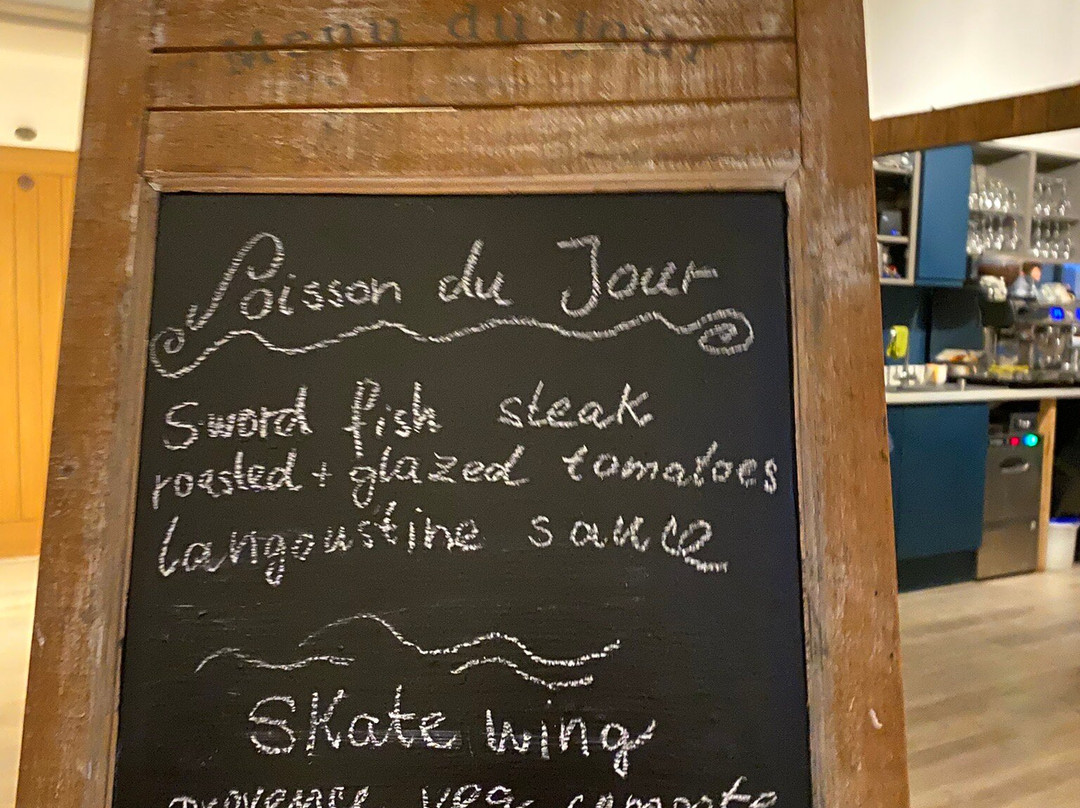 Menu du Jour
Poisson du Jour
Sword fish steak
roasted + glazed tomatoes
langoustine sauce
Skate wing
provence veg compote